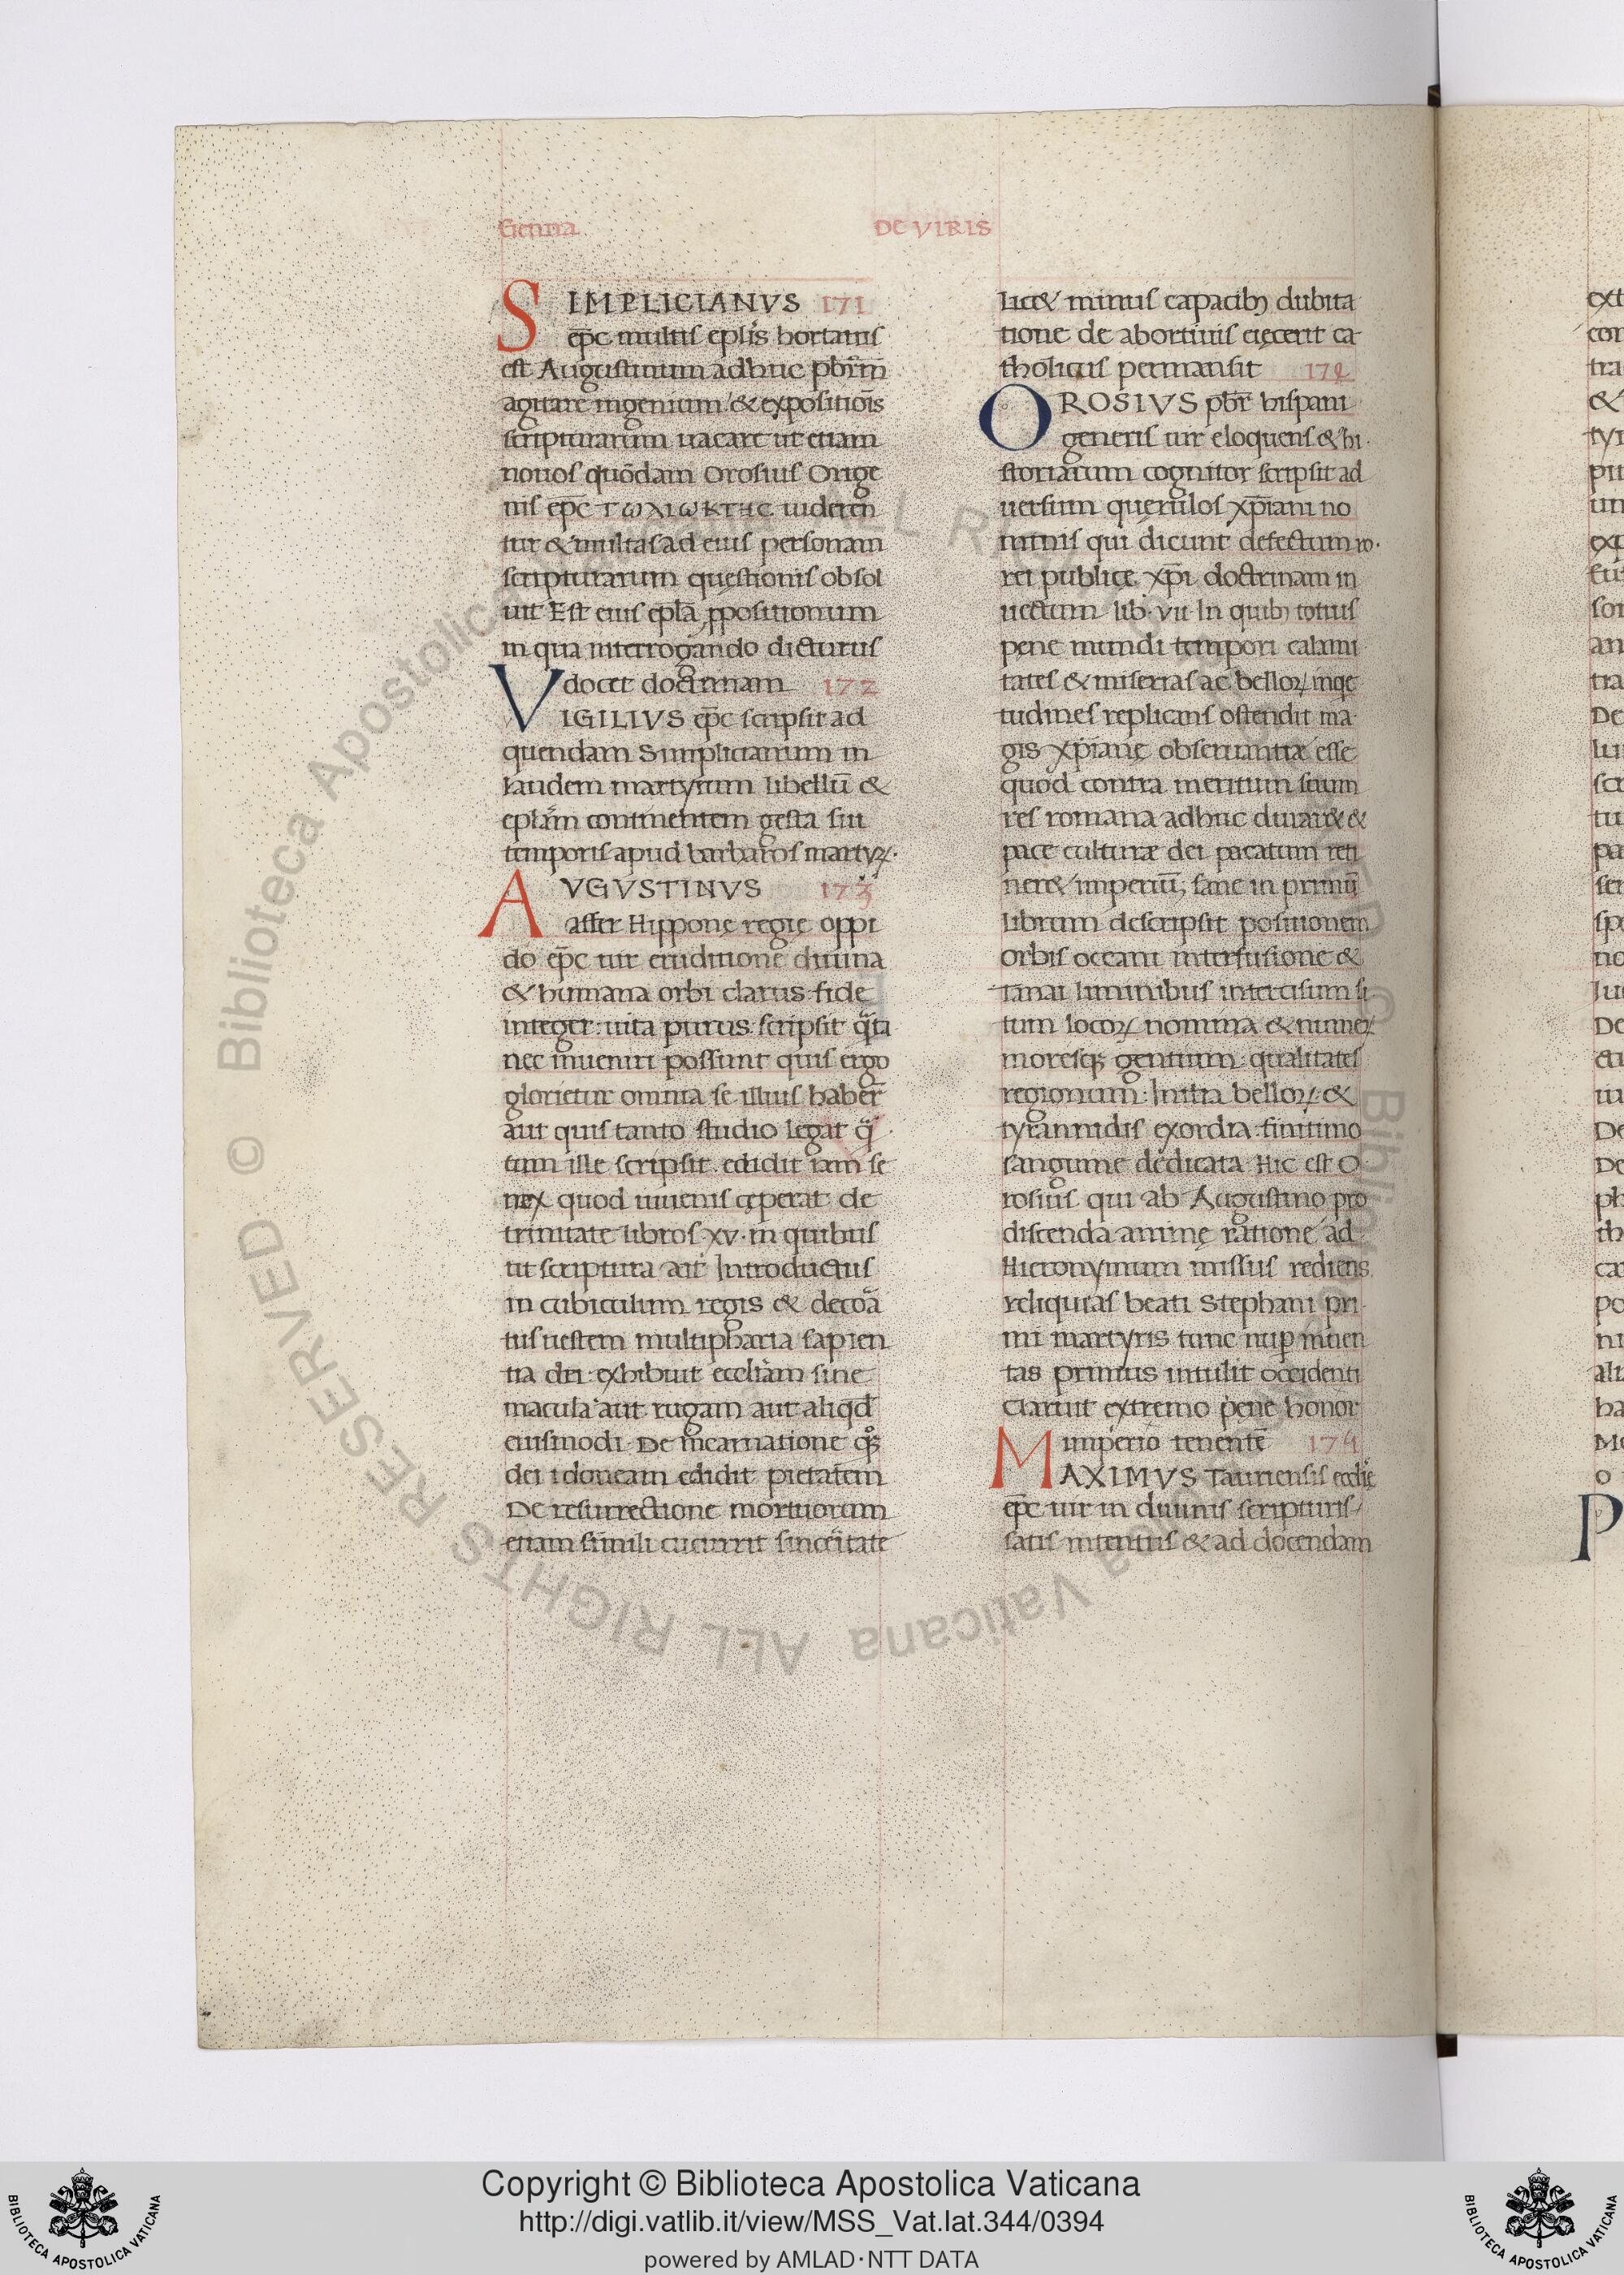 Genna DE VIRIS
SIMPLICIANVS 171
ep̄c multis epl̄is hortatus
est Augustinum adhuc pb̄rm̄
agitare ingenium: & expositiōis
scripturarum uacare ut etiam
nouos quōdam Orosius Orige
nis ep̄c ΤωΛΙωΚΤΗC uideren̄
tur & multas ad eius personam
scripturarum quęstionis obsol
uit Est eius epl̄a ꝓpositionum
in qua interrogando dicturus
docet doctrinam 172
VIGILIVS ep̄c scripsit ad
quendam Simplicianum in
laudem martyrum libellū &
epl̄am continentem gesta sui
temporis apud barbaros martyꝝ.
AVGVSTINVS 173
affer Hippone regie oppi
do ep̄c uir eruditione diuina
& humana orbi clarus: fide
integer: uita purus: scripsit q̄ta
nec inueniri possunt quis ergo
glorietur omnia se illius haber̄
aut quis tanto studio legat q̄
tum ille scripsit. edidit iam se
nex quod iuuenis cęperat de
trinitate libros xv. in quibus
ut scriptura ait Introductus
in cubiculum regis & decoā
tus uestem multipharia sapien
tia dei: exhibuit eccl̄iam sine
macula aut rugam aut aliqd̄
eiusmodi. De incarnatione q̊ꝫ
dei idoneam edidit pietatem
De resurrectione mortuorum
etiam simili cucurrit sinceritate
lic& minus capacibꝫ dubita
tione de abortiuis eiecerit ca
tholicus permansit 172
OROSIVS pb̄r hispani
generis uir eloquens & hi
storiarum cognitor scripsit ad
uersum querulos xp̄iani no
minis qui dicunt defectum ro.
rei publicę xp̄i doctrinam in
uectum lib. vii. In quibꝫ totius
pene mundi tempori calami
tates & miserias ac belloꝝ inqe
tudines replicans ostendit ma
gis xp̄ianę obseruantiæ esse
quod contra meritum suum
res romana adhuc durar& &
pace culturæ dei pacatum reti
ner& imperiū; sane in primū
librum descripsit positionem
orbis oceani interfusione &
tanai liminibus intercisum si
tum locoꝝ nomina & numeꝝ
moresqꝫ gentium: qualitates
regionum: Initia belloꝝ: &
tyrannidis exordia finitimo
sanguine dedicata. Hic est O
rosius qui ab Augustino pro
discenda animę ratione ad
Hieronymum missus rediens
reliquias beati Stephani pri
mi martyris tunc nuꝑ inuen
tas primus intulit occidenti
Claruit extremo pene honor̄
imperio tenentē 174
MAXIMVS Tauriensis eccl̄ię
ep̄c uir in diuinis scripturis
satis intentus & ad docendam
Copyright © Biblioteca Apostolica Vaticana
http://digi.vatlib.it/view/MSS_Vat.lat.344/0394
powered by AMLAD·NTT DATA
BIBLIOTECA APOSTOLICA VATICANA
BIBLIOTECA APOSTOLICA VATICANA